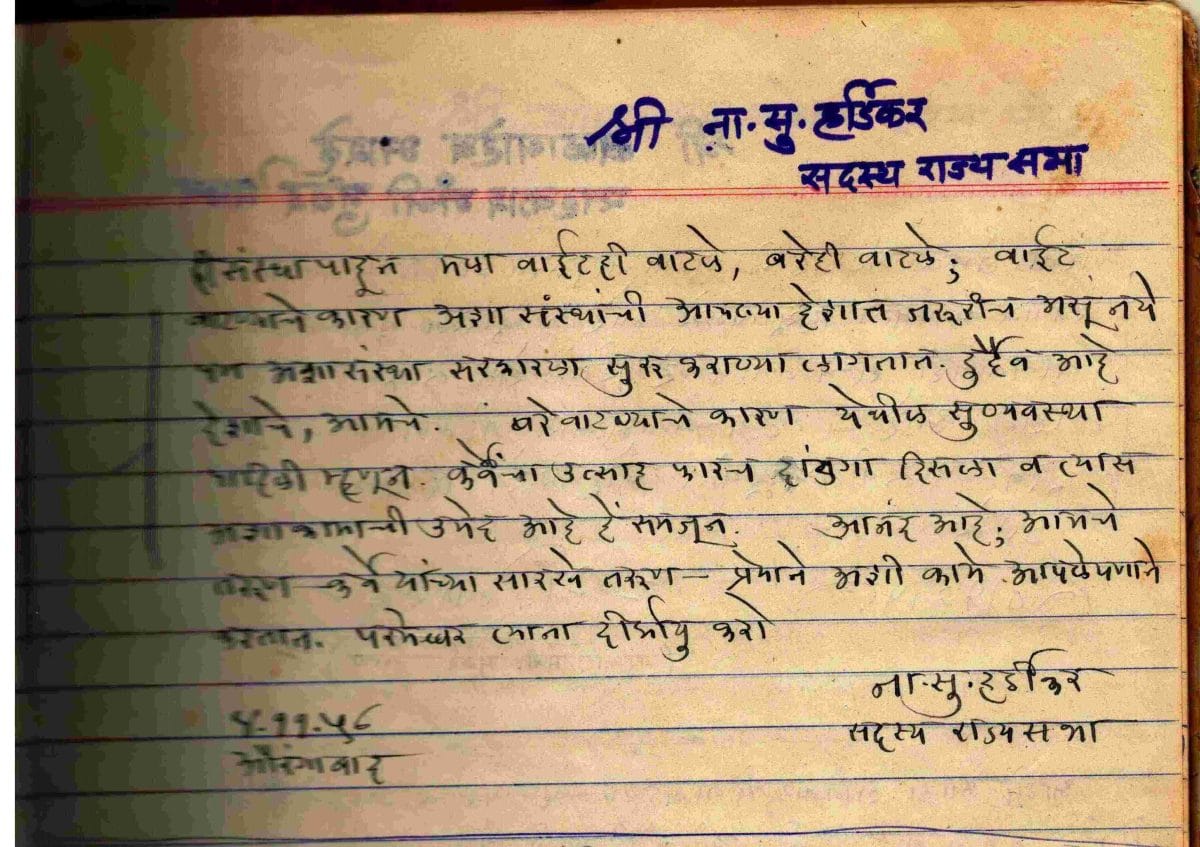 श्री ना. सु. हर्डिकर
सदस्य राज्य सभा
ही संस्था पाहून मला वाईटही वाटले, बरेही वाटले; वाईट
वाटण्याचे कारण अशा संस्थांची आपल्या देशात जरूरीच असू नये
पण अशा संस्था सरकारला सुरू कराव्या लागतात. दुर्दैव आहे
देशाचे, आमचे. बरे वाटण्याचे कारण येथील सुव्यवस्था
पाहिली म्हणून. कर्वेंचा उत्साह फारच दिसला व त्यास
अशा कामाची उमेद आहे हें समजून. आनंद आहे; आमचे
तरूण कर्वे यांच्या सारखे तरूण – प्रेमाने अशी कामे आपलेपणाने
करतात. परमेश्वर त्याना दीर्घायु करो
ना. सु. हर्डीकर
सदस्य राज्य सभा
५-११-५६
औरंगाबाद